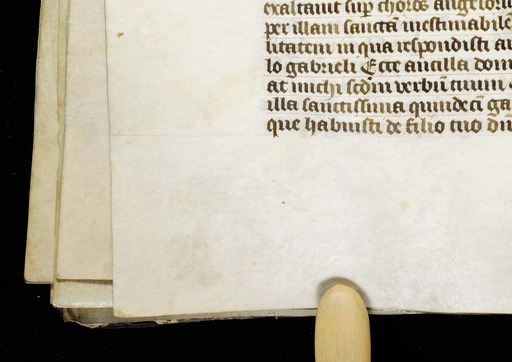 exaltavit sup̄ choros angeloru
per illam sanctā inestimabilē
litatem in qua respondisti an
lo gabrieli Ecce ancilla dom
at michi scd̄m verbū tuum
illa sanctissima quindecī ga
que habuisti de filio tuo dn̄